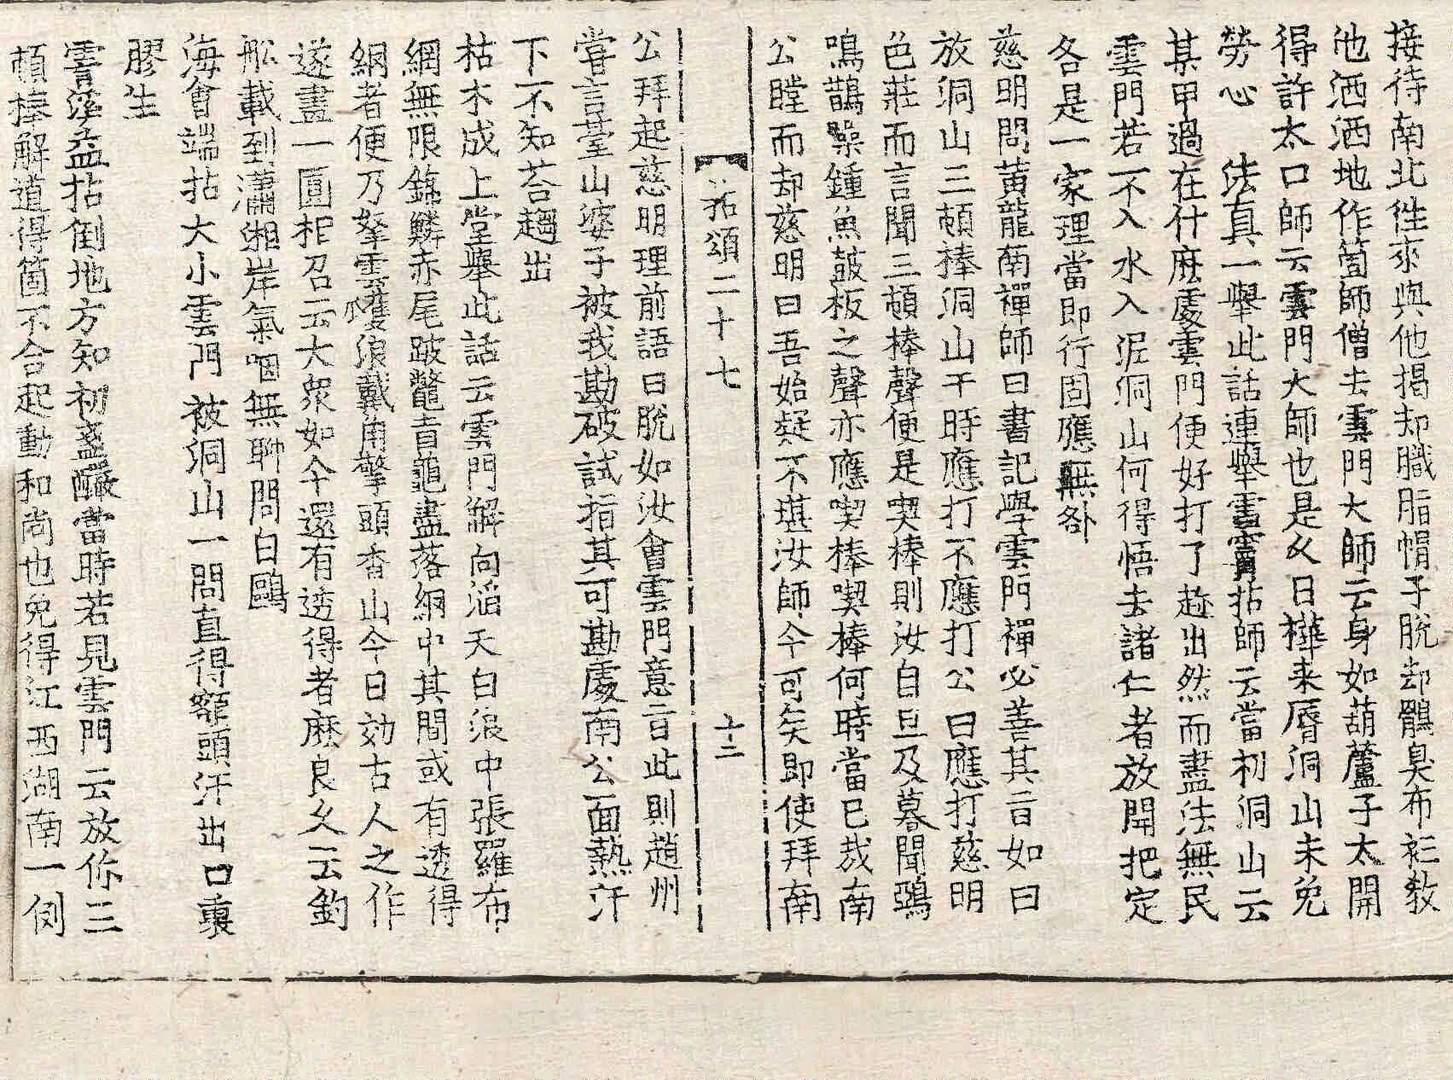 接待南北徃來與他揭却膱脂㡌子脫却鶻臭布衫敎
他洒洒地作箇師僧去雲門大師云身如葫蘆子太開
得許太口師云雲門大師也是久日樺来辱洞山未免
勞心　法真一擧此話連擧雪竇拈師云當初洞山云
某甲過在什麽處雲門便好打了趂出然而盡法無民
雲門若不入水入泥洞山何得悟去諸仁者放開把定
各是一家理當即行固應無咎
慈明問黃龍南禪師曰書記學雲門禪必善其旨如曰
放洞山三頓棒洞山于時應打不應打公曰應打慈明
色莊而言聞三頓棒聲便是喫棒則汝自旦及暮聞鵶
鳴鵲噪鍾魚皷板之聲亦應喫棒喫棒何時當已㢤南
公瞠而却慈明曰吾始疑不堪汝師今可矣即使拜南
拈頌二十七
十二
公拜起慈明理前語曰脫如汝會雲門意旨此則趙州
甞言臺山婆子被我勘破試指其可勘處南公面熱汗
下不知荅趨出
枯木成上堂擧此話云雲門解向滔天白浪中張羅布
網無限錦鱗赤尾跛鼈盲龜盡落網中其間或有透得
網者便乃拏雲攫浪戴角擎頭香山今日効古人之作
遂盡一圓相召云大衆如今還有透得者麽良久云釣
舩載到瀟湘岸氣咽無聊問白鷗
海會端拈大小雲門被洞山一問直得額頭汗出口裏
膠生
霅溪益拈倒地方知初盞釅當時若見雲門云放你三
頓棒解道得箇不合起動和尚也免得江西湖南一倒